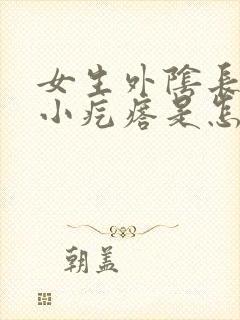 女生外陰長
小疙瘩是怎
朝盖